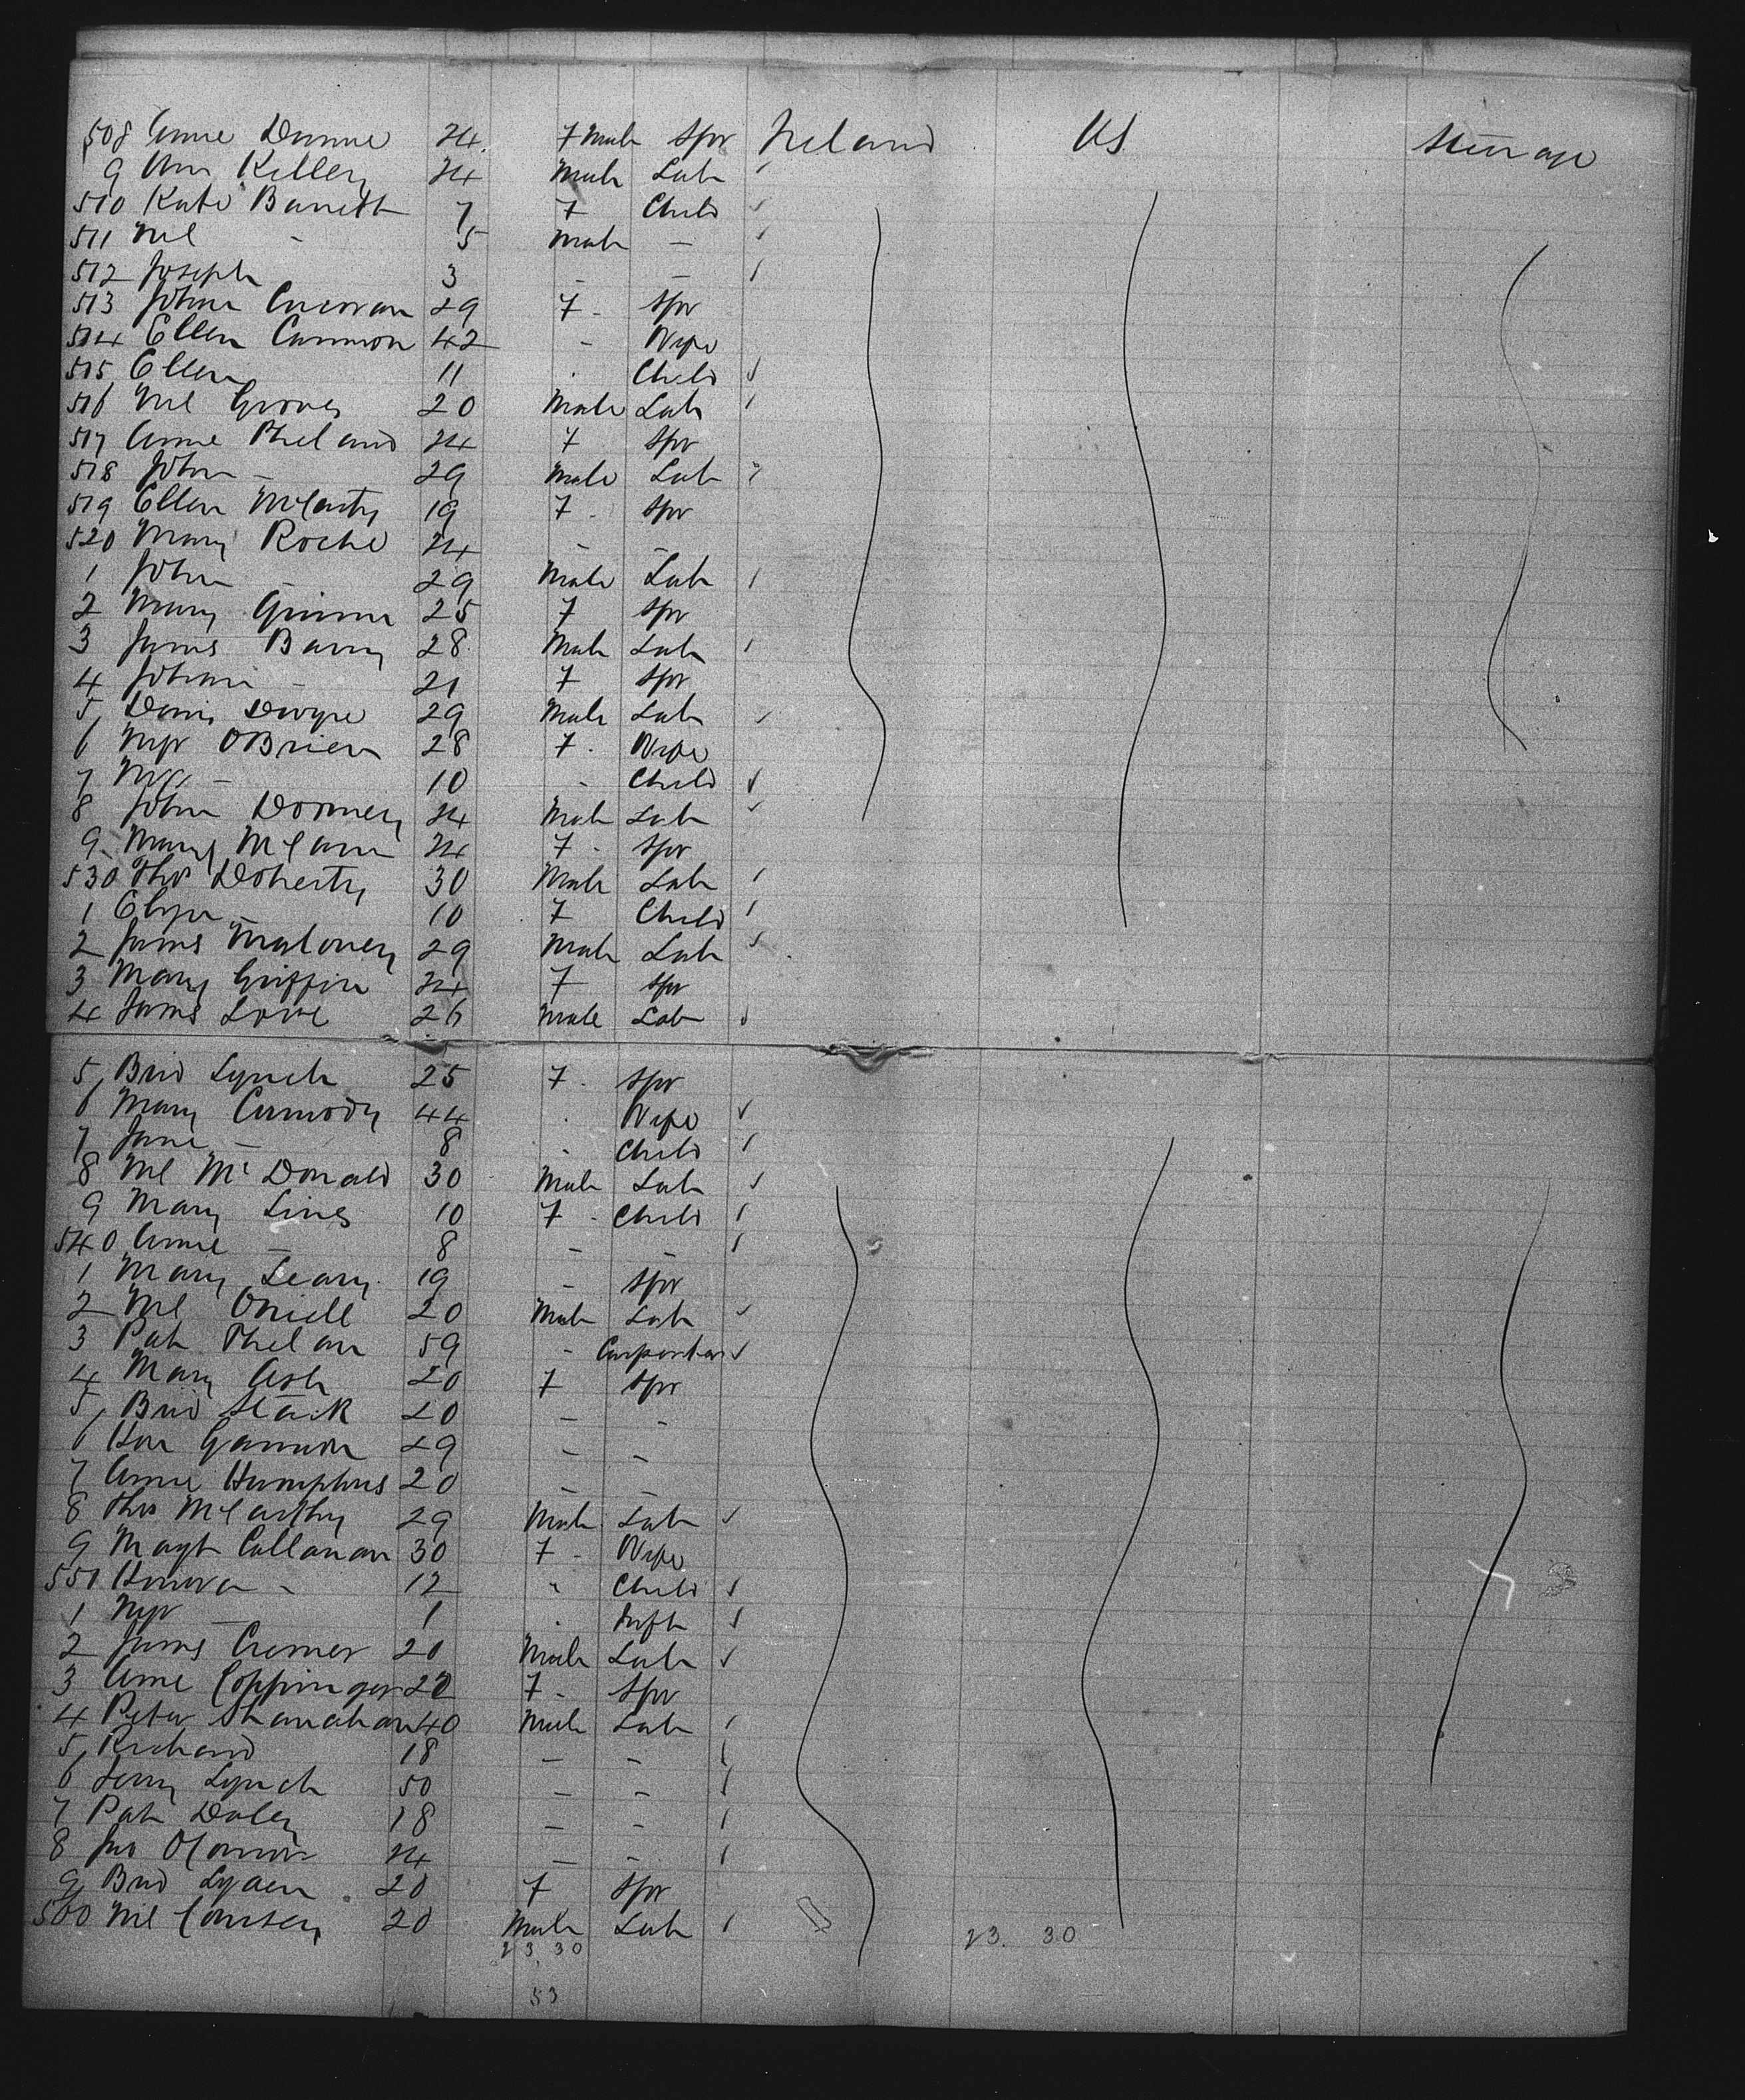 508 Anne Dunne 24 F Male Spr Ireland US Steerage
9 Ann Killey 24 Male Lab
510 Kate Barrett 7 F Child
511 Ml - 5 Male -
512 Joseph 3 - -
513 Johna Curran 29 F - Spr
514 Ellen Cannon 42 - Wife
515 Ellen 11 Child
516 Ml Groves 20 Male Lab
517 Anne Pheland 24 F Spr
518 John - 29 Male Lab
519 Ellen McCarty 19 F - Spr
520 Mary Roche 24 - -
1 John - 29 Male Lab
2 Mary 25 F Spr
3 James Barry 28 Male Lab
4 Johana - 21 F Spr
5 Danis Dwyre 29 Male Lab
6 Mgt OBrien 28 F - Wife
7 - 10 - Child
8 John 24 Male Lab
9 Mary McCann 24 F - Spr
530 Thos Doherty 30 Male Lab
1 Eliza - 10 F Child
2 James Maloney 29 Male Lab
3 Mary Griffin 24 F Spr
4 James Love 26 Male Lab
5 Brid Lynch 25 F - Spr
6 Mary Carmody 44 Wife
7 Jane - 8 Child
8 Ml McDonald 30 Male Lab
9 Mary Lines 10 F - Child
540 Anne - 8 - -
1 Mary Leary 19 - Spr
2 Ml Oniell 20 Male Lab
3 Pat Phelan 59 - Carpenter
4 Mary Ash 20 F Spr
5 Brid Stack 20 - -
6 Hon Gammon 29 - -
7 Anne Humphres 20 - -
8 Thos McCarthy 29 Male Lab
9 Magt Callanan 30 F - Wife
550 Honora - 12 " Child
1 Mgt - 1 Inft
2 James Cremer 20 Male Lab
3 Anne Coppinger 22 F - Spr
4 Peter Shanahan 40 Male Lab
5 Richard 18 - -
6 Jerry Lynch 50 - -
7 Pat Daley 18 - -
8 Jno OConnor 24 - -
9 Brid 20 F Spr
560 Ml 20 Male Lab
23 30 23. 30
53